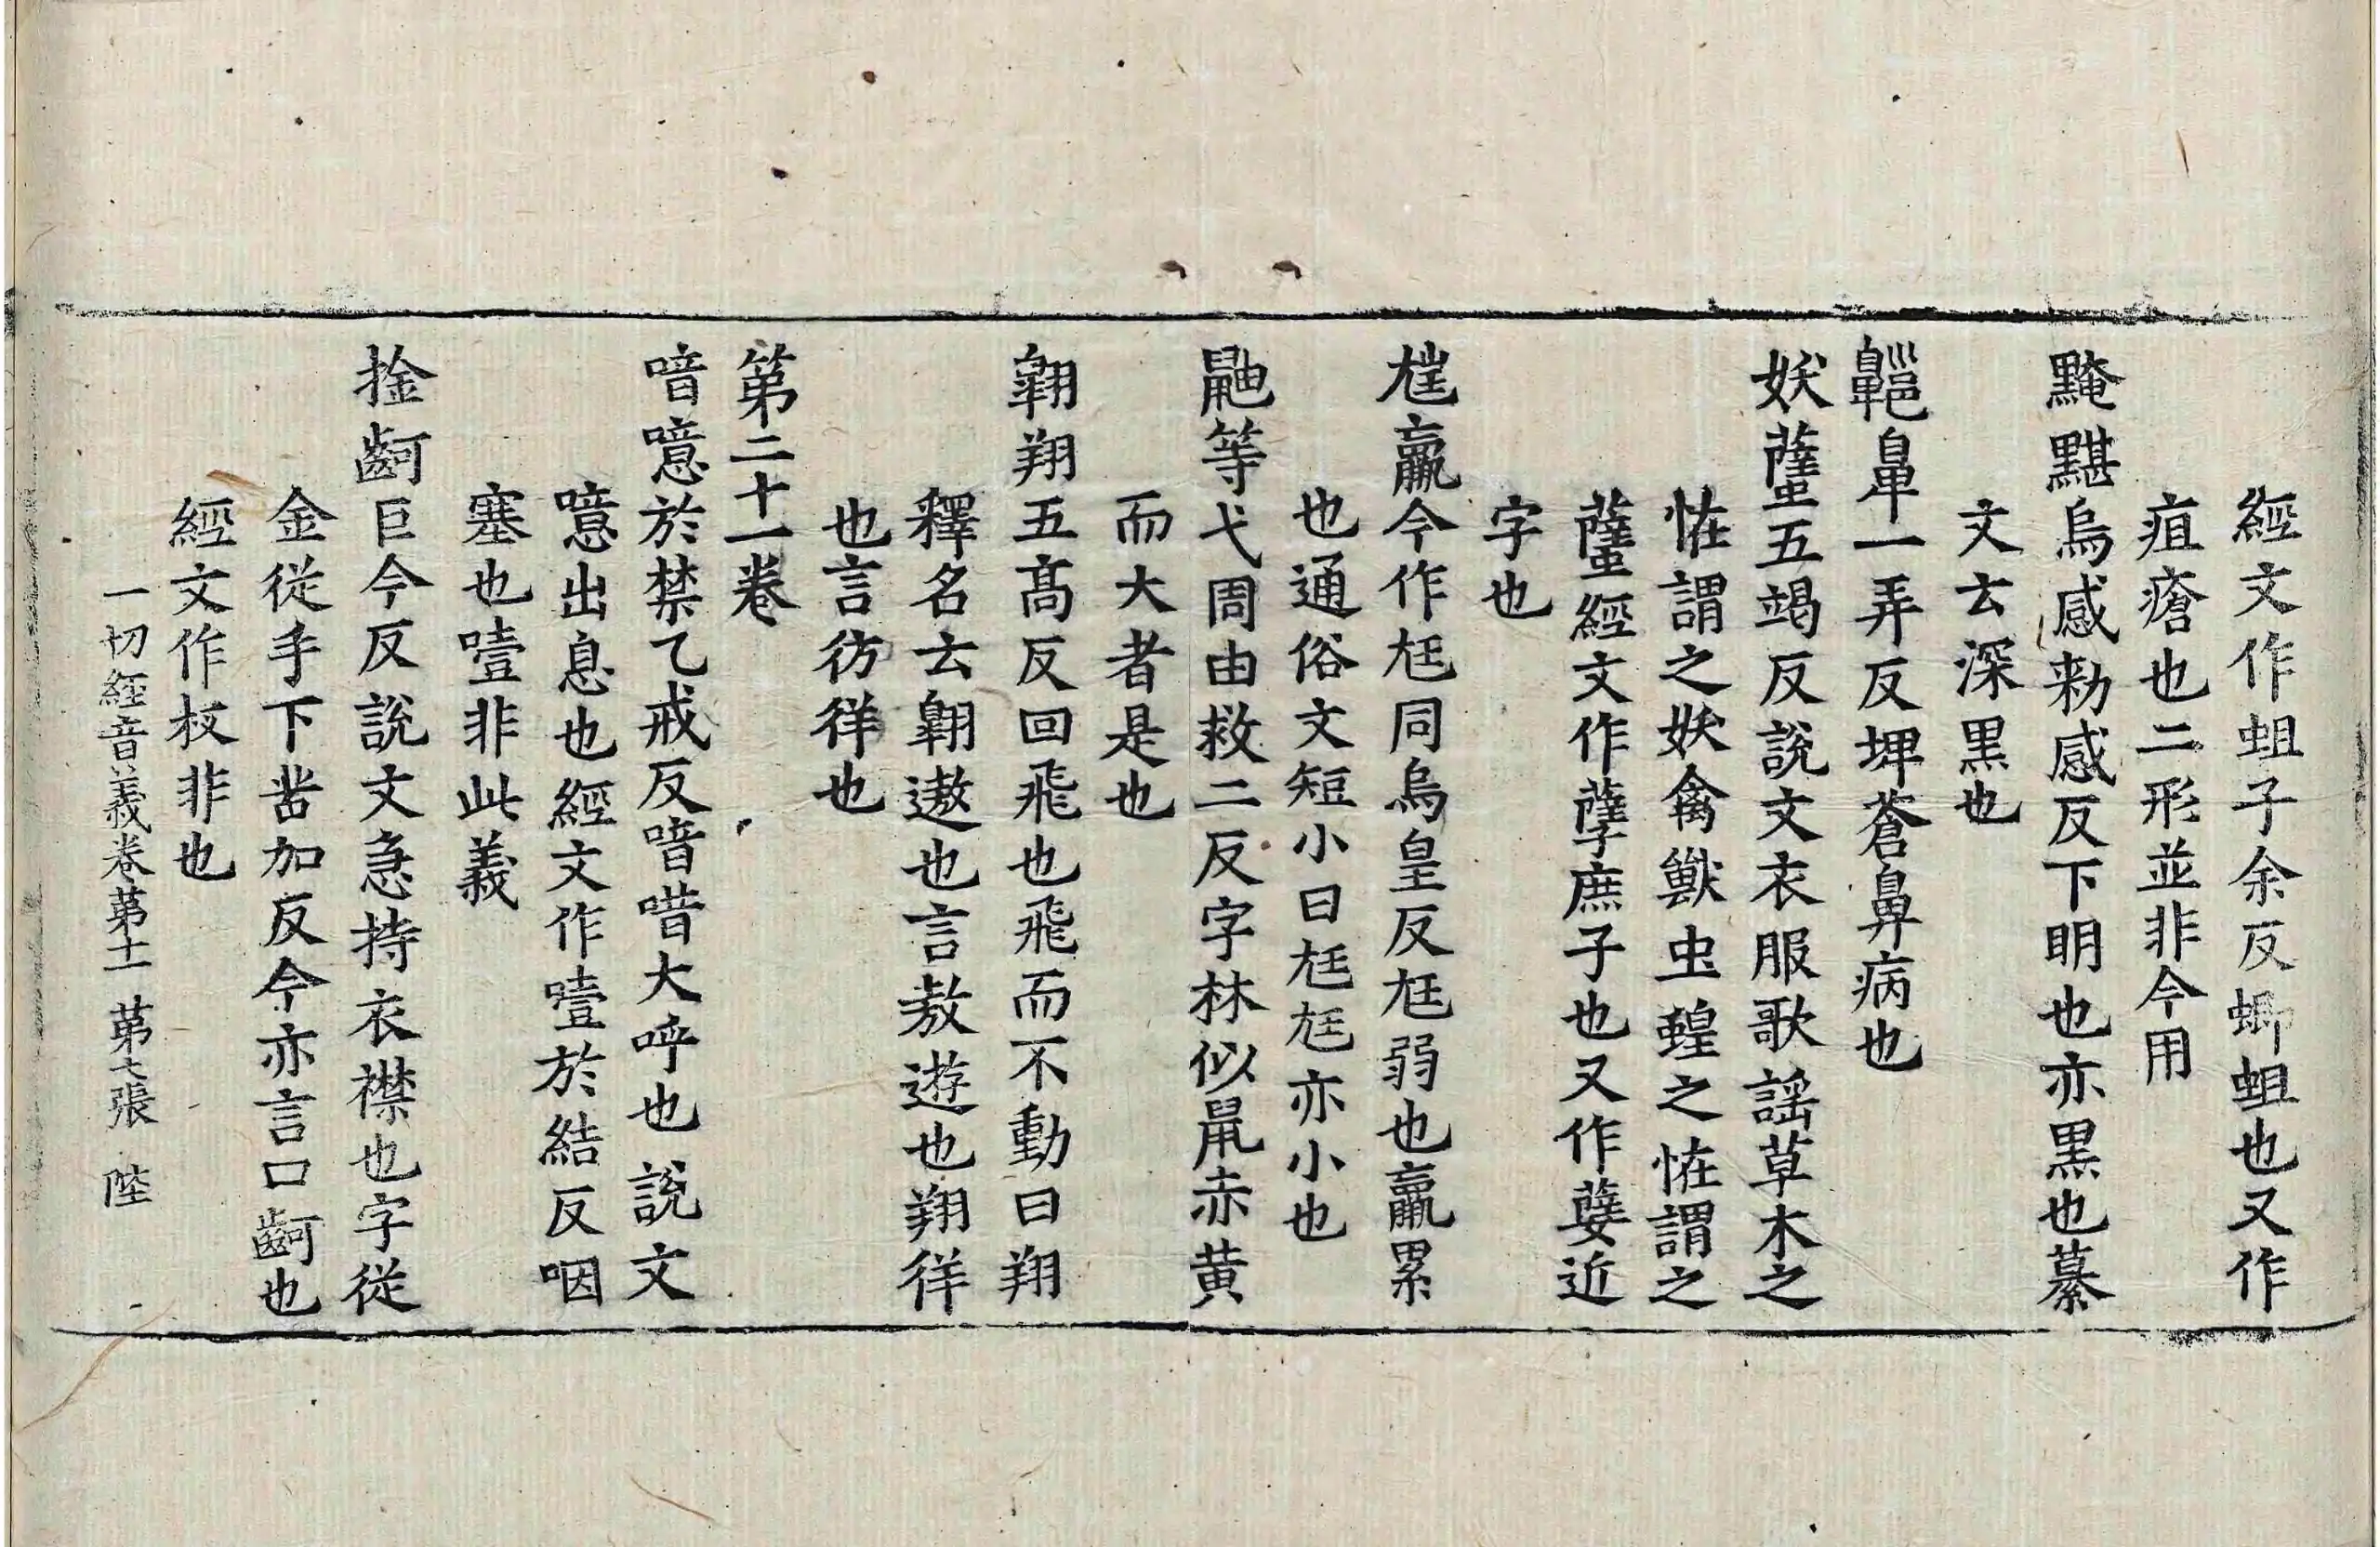 經文作蛆子余反蝍蛆也又作
疽瘡也二形並非今用
黤黮烏感勑感反下眀也亦黒也纂
文云深黒也
齆鼻一弄反埤蒼鼻病也
妖蠥五竭反說文衣服歌謡草木之
恠謂之妖禽獸虫蝗之恠謂之
蠥經文作孽庶子也又作㜸近
字也
尪羸今作尩同烏皇反尩弱也羸累
也通俗文短小曰尩尩亦小也
鼬等弋周由救二反字林似鼠赤黄
而大者是也
翺翔五髙反回飛也飛而不動曰翔
釋名云翺遨也言敖遊也翔徉
也言彷徉也
第二十一卷
喑噫於禁乙戒反喑唶大呼也說文
噫出息也經文作噎於結反咽
塞也噎非此義
捦齖巨今反說文急持衣襟也字從
金從手下齒加反今亦言口齖也
經文作杈非也
一切經音義卷苐十一 苐七張 陛